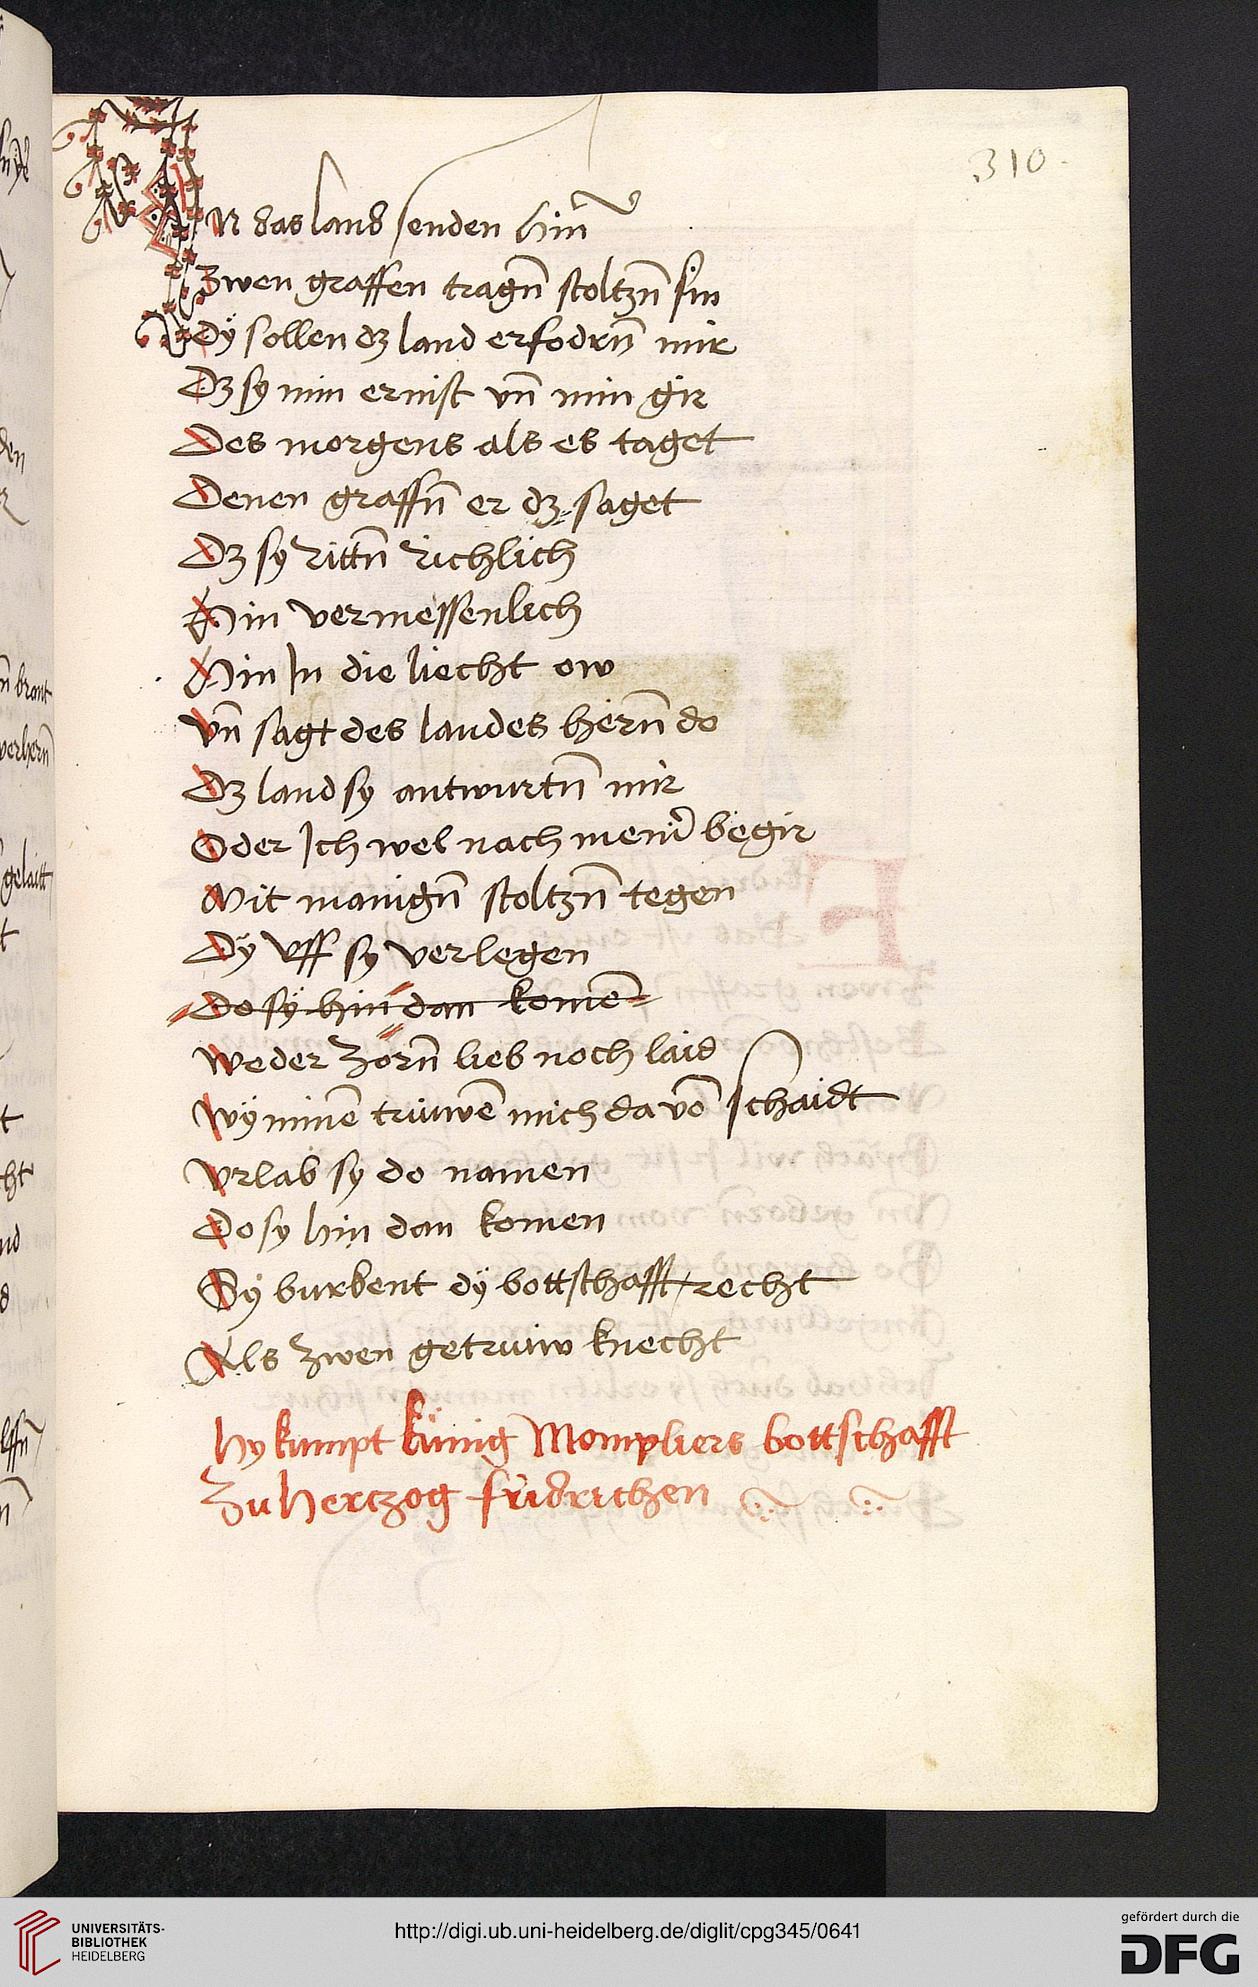 310
IN das land senden hin̄
Zwen graffen tragn̄ stoltzn̄ sin
Dÿ sollen dz land erfodrn̄ mir
Dz sy min ernist vn̄ min gir
Des morgens als es taget
Denen graffn̄ er dz saget
Dz sy rittn̄ richlich
Hin vermessenlich
Hin In die liecht ow
Vn̄ sagt des landes hern̄ do
Dz land sy antwurtn̄ mir
Oder Ich wel nach begir
Mit manign̄ stoltzn̄ tegen
Dÿ vff sy verlegen
Do sÿ hin dan komen̄
Weder zorn̄ lieb noch laid
Wÿ minē trüwē mich da vō schaidt
Vrlab sy do namen
Do sy hin dan komen
Dÿ wurbent dÿ bottschafft recht
Als zwen getruiw knecht
Hy kumpt künig Mompliers bottschafft
Zu hertzog fridrichen
UNIVERSITÄTS-
BIBLIOTHEK
HEIDELBERG
http://digi.ub.uni-heidelberg.de/diglit/cpg345/0641
gefördert durch die
DFG